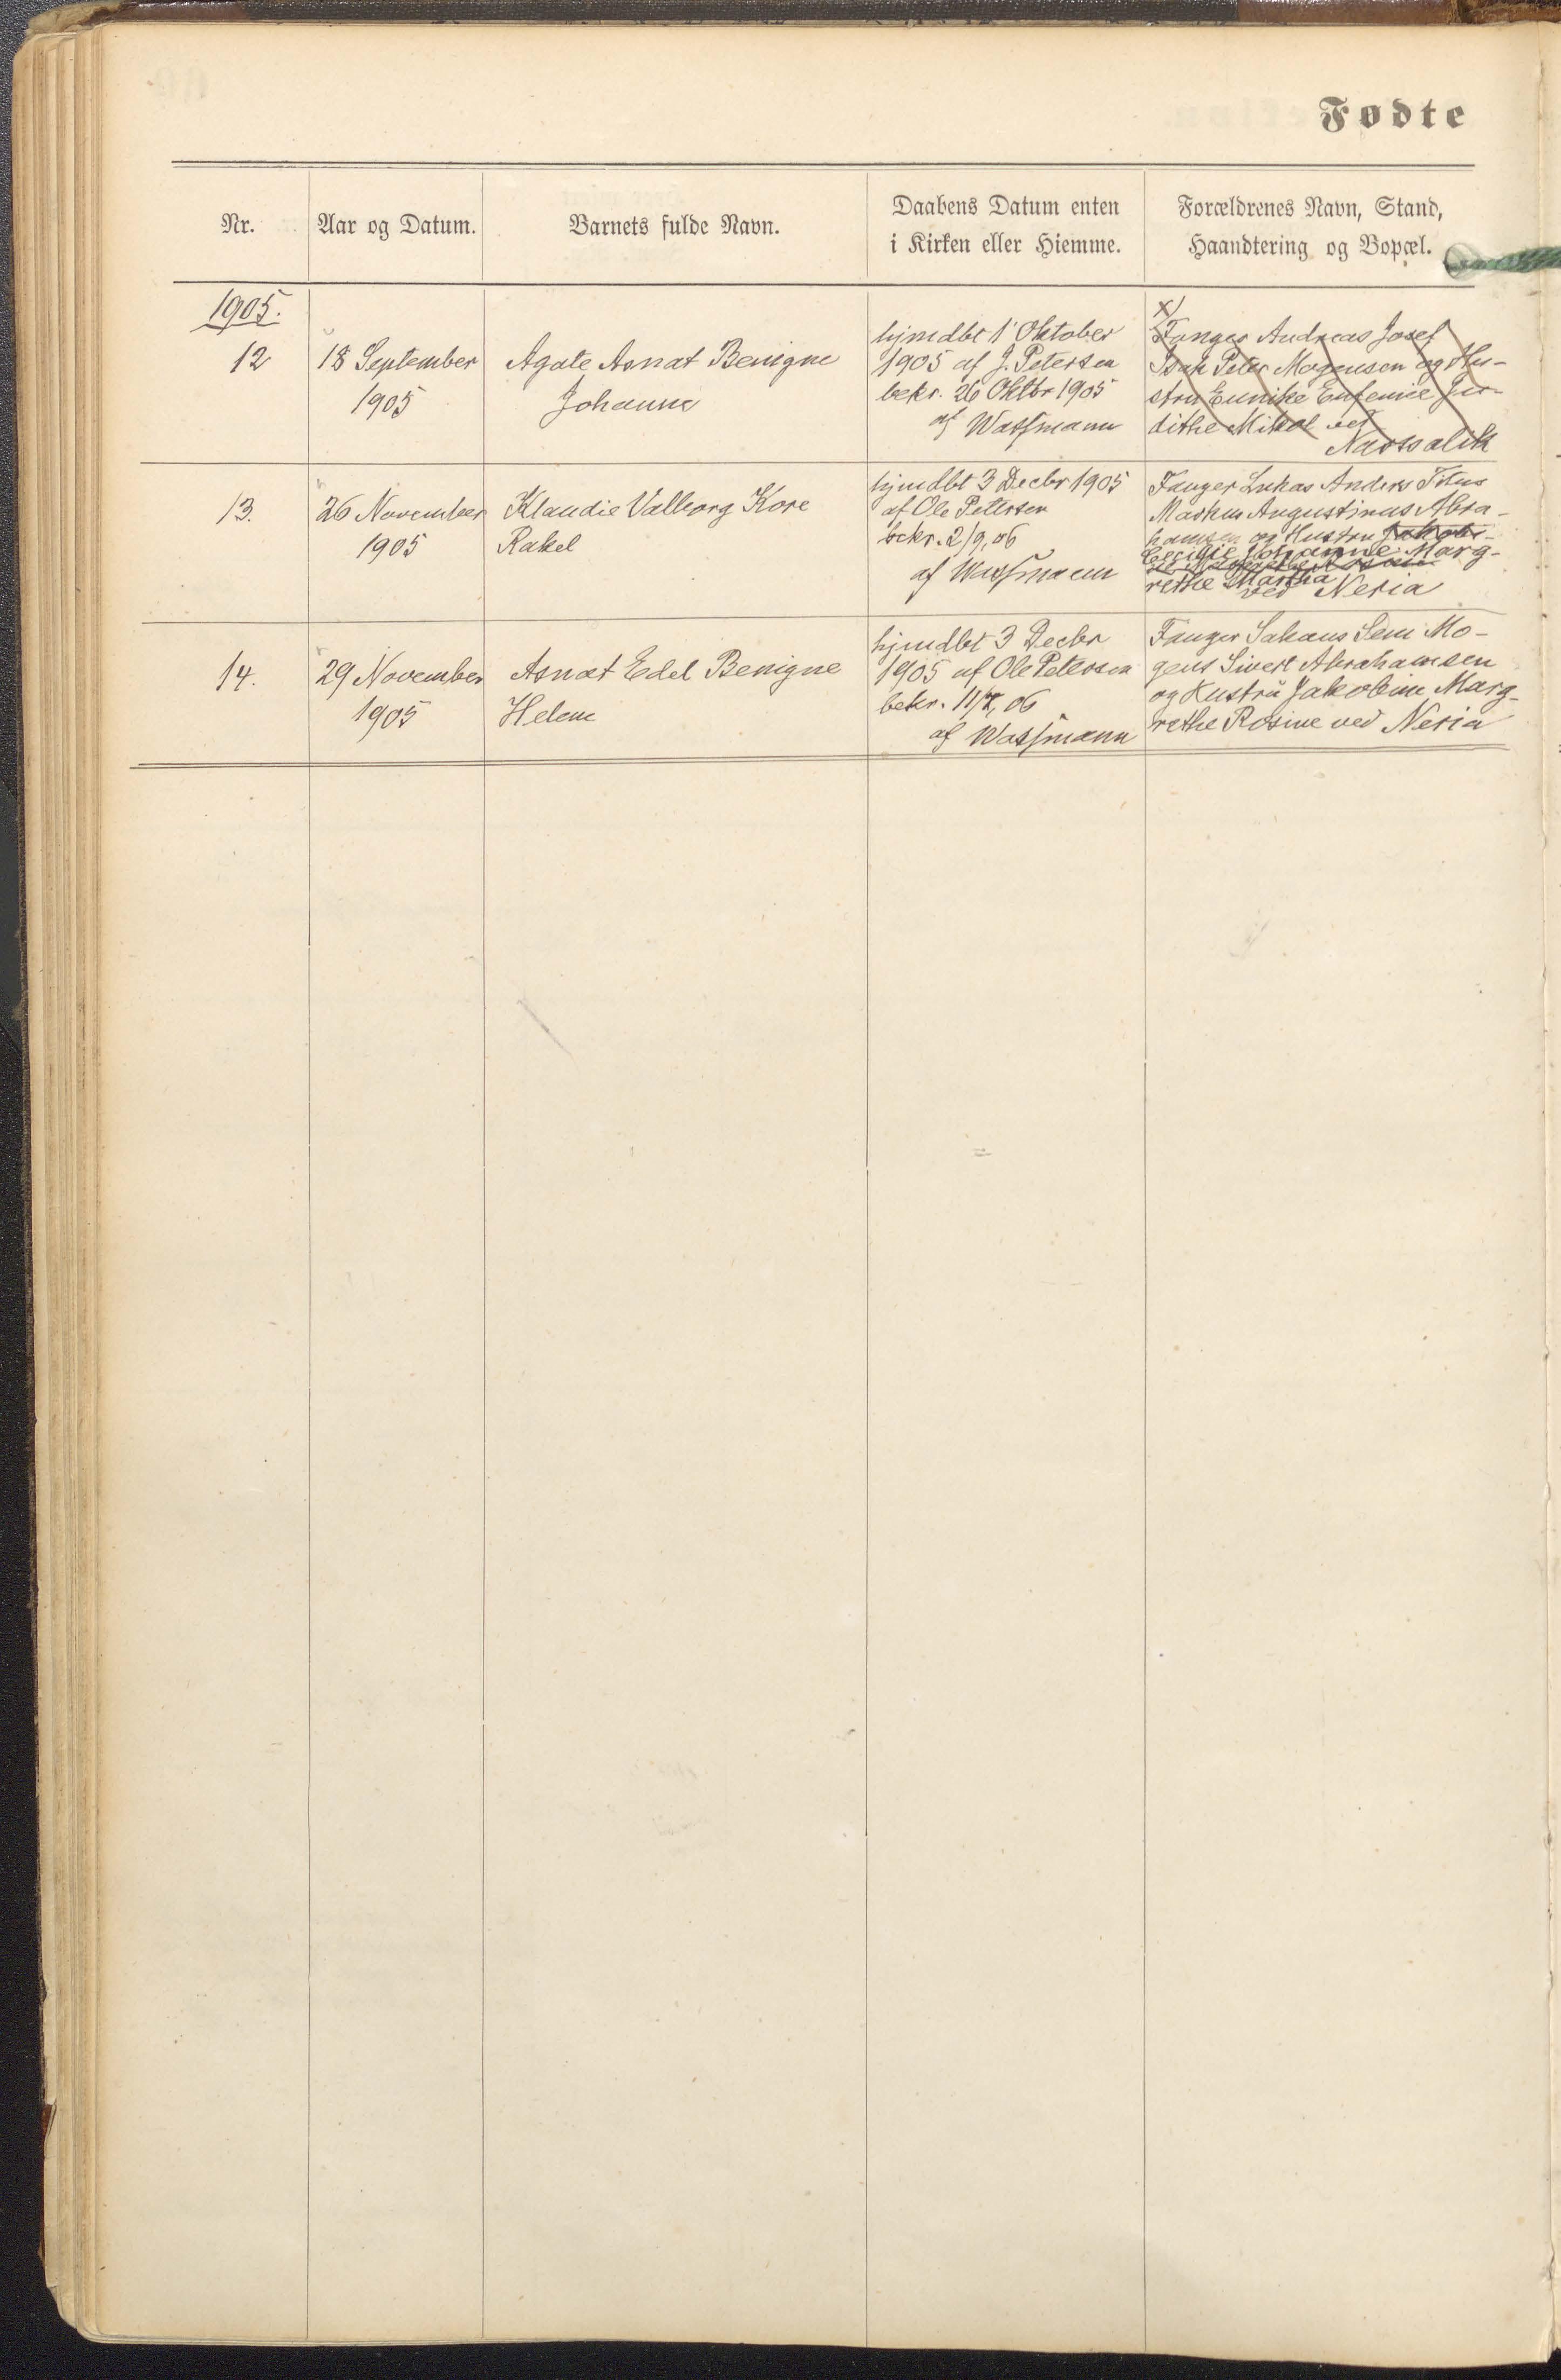 Fødte
Nr.
Aar og Datum.
Barnets fulde Navn.
Daabens Datum enten
i Kirken eller Hiemme.
Forældrenes Navn, Stand,
Haandtering og Bopæl.
1905.
12
18 September
1905
Agate Asnat Benigne
Johanne
hjmdbt 1 Oktober
1905 af J. Petersen
bekr. 26 Oktbr 1905
af Wassmann
x/
Fanger Andreas Josef
Isak Peter Mogensen og Hu-
stru Eunike Eufemie Ju-
dithe Mikal ved
Narssalik
13.
26 November
1905
Klaudie Valborg Kore
Rakel
hjmdbt 3 Decbr 1905
af Ole Petersen
bekr. 2/9, 06
af Wassmann
Fanger Lukas Anders Titus
Markus Augustinus Abra-
hamsen og Hustru Jakobi-
Cecilie Johanne Marg-
rethe Martha
ved Neria
14.
29 November
1905
Asnat Edel Benigne
Helene
hjmdbt 3 Decbr
1905 af Ole Petersen
bekr. 11/7, 06
af Wassmann
Fanger Sakæus Sem Mo-
gens Sivert Abrahamsen
og Hustru Jakobine Marg-
rethe Rosine ved Neria